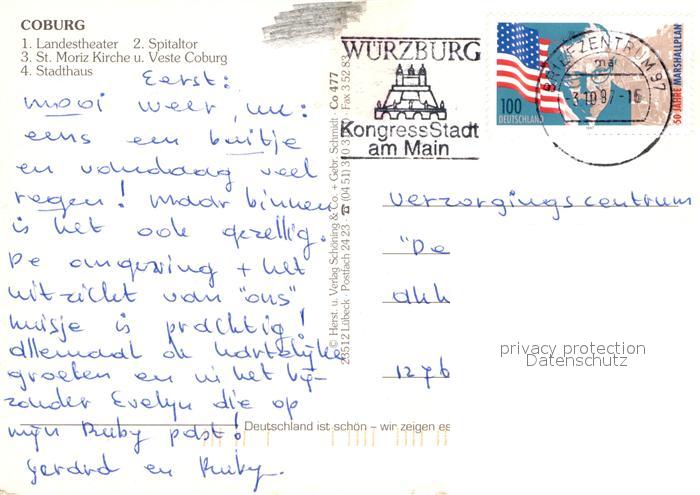 COBURG
1. Landestheater 2. Spitaltor
3. St. Moriz Kirche u. Veste Coburg
4. Stadthaus
Eerst:
mooi weer, nu:
eens een buitje
en vandaag veel
regen! Maar binnen
is het ook gezellig.
De omgeving + het
uitzicht van "ons"
huisje is prachtig!
Allemaal de hartelijke
groeten en in het bij-
zonder Evelyn die op
mijn Ruby past!
Gerard en Ruby.
© Herst. u. Verlag Schöning & Co. + Gebr. Schmidt · Co 477
23512 Lübeck · Postfach 24 23 · ☎ (04 51) 3 10 3 Fax 3 52 83
WÜRZBURG
KongressStadt
am Main
BRIEFZENTRUM 97
3.10.97-15
100
DEUTSCHLAND
50 JAHRE MARSHALLPLAN
Verzorgingscentrum
"De
1276
privacy protection
Datenschutz
Deutschland ist schön – wir zeigen es